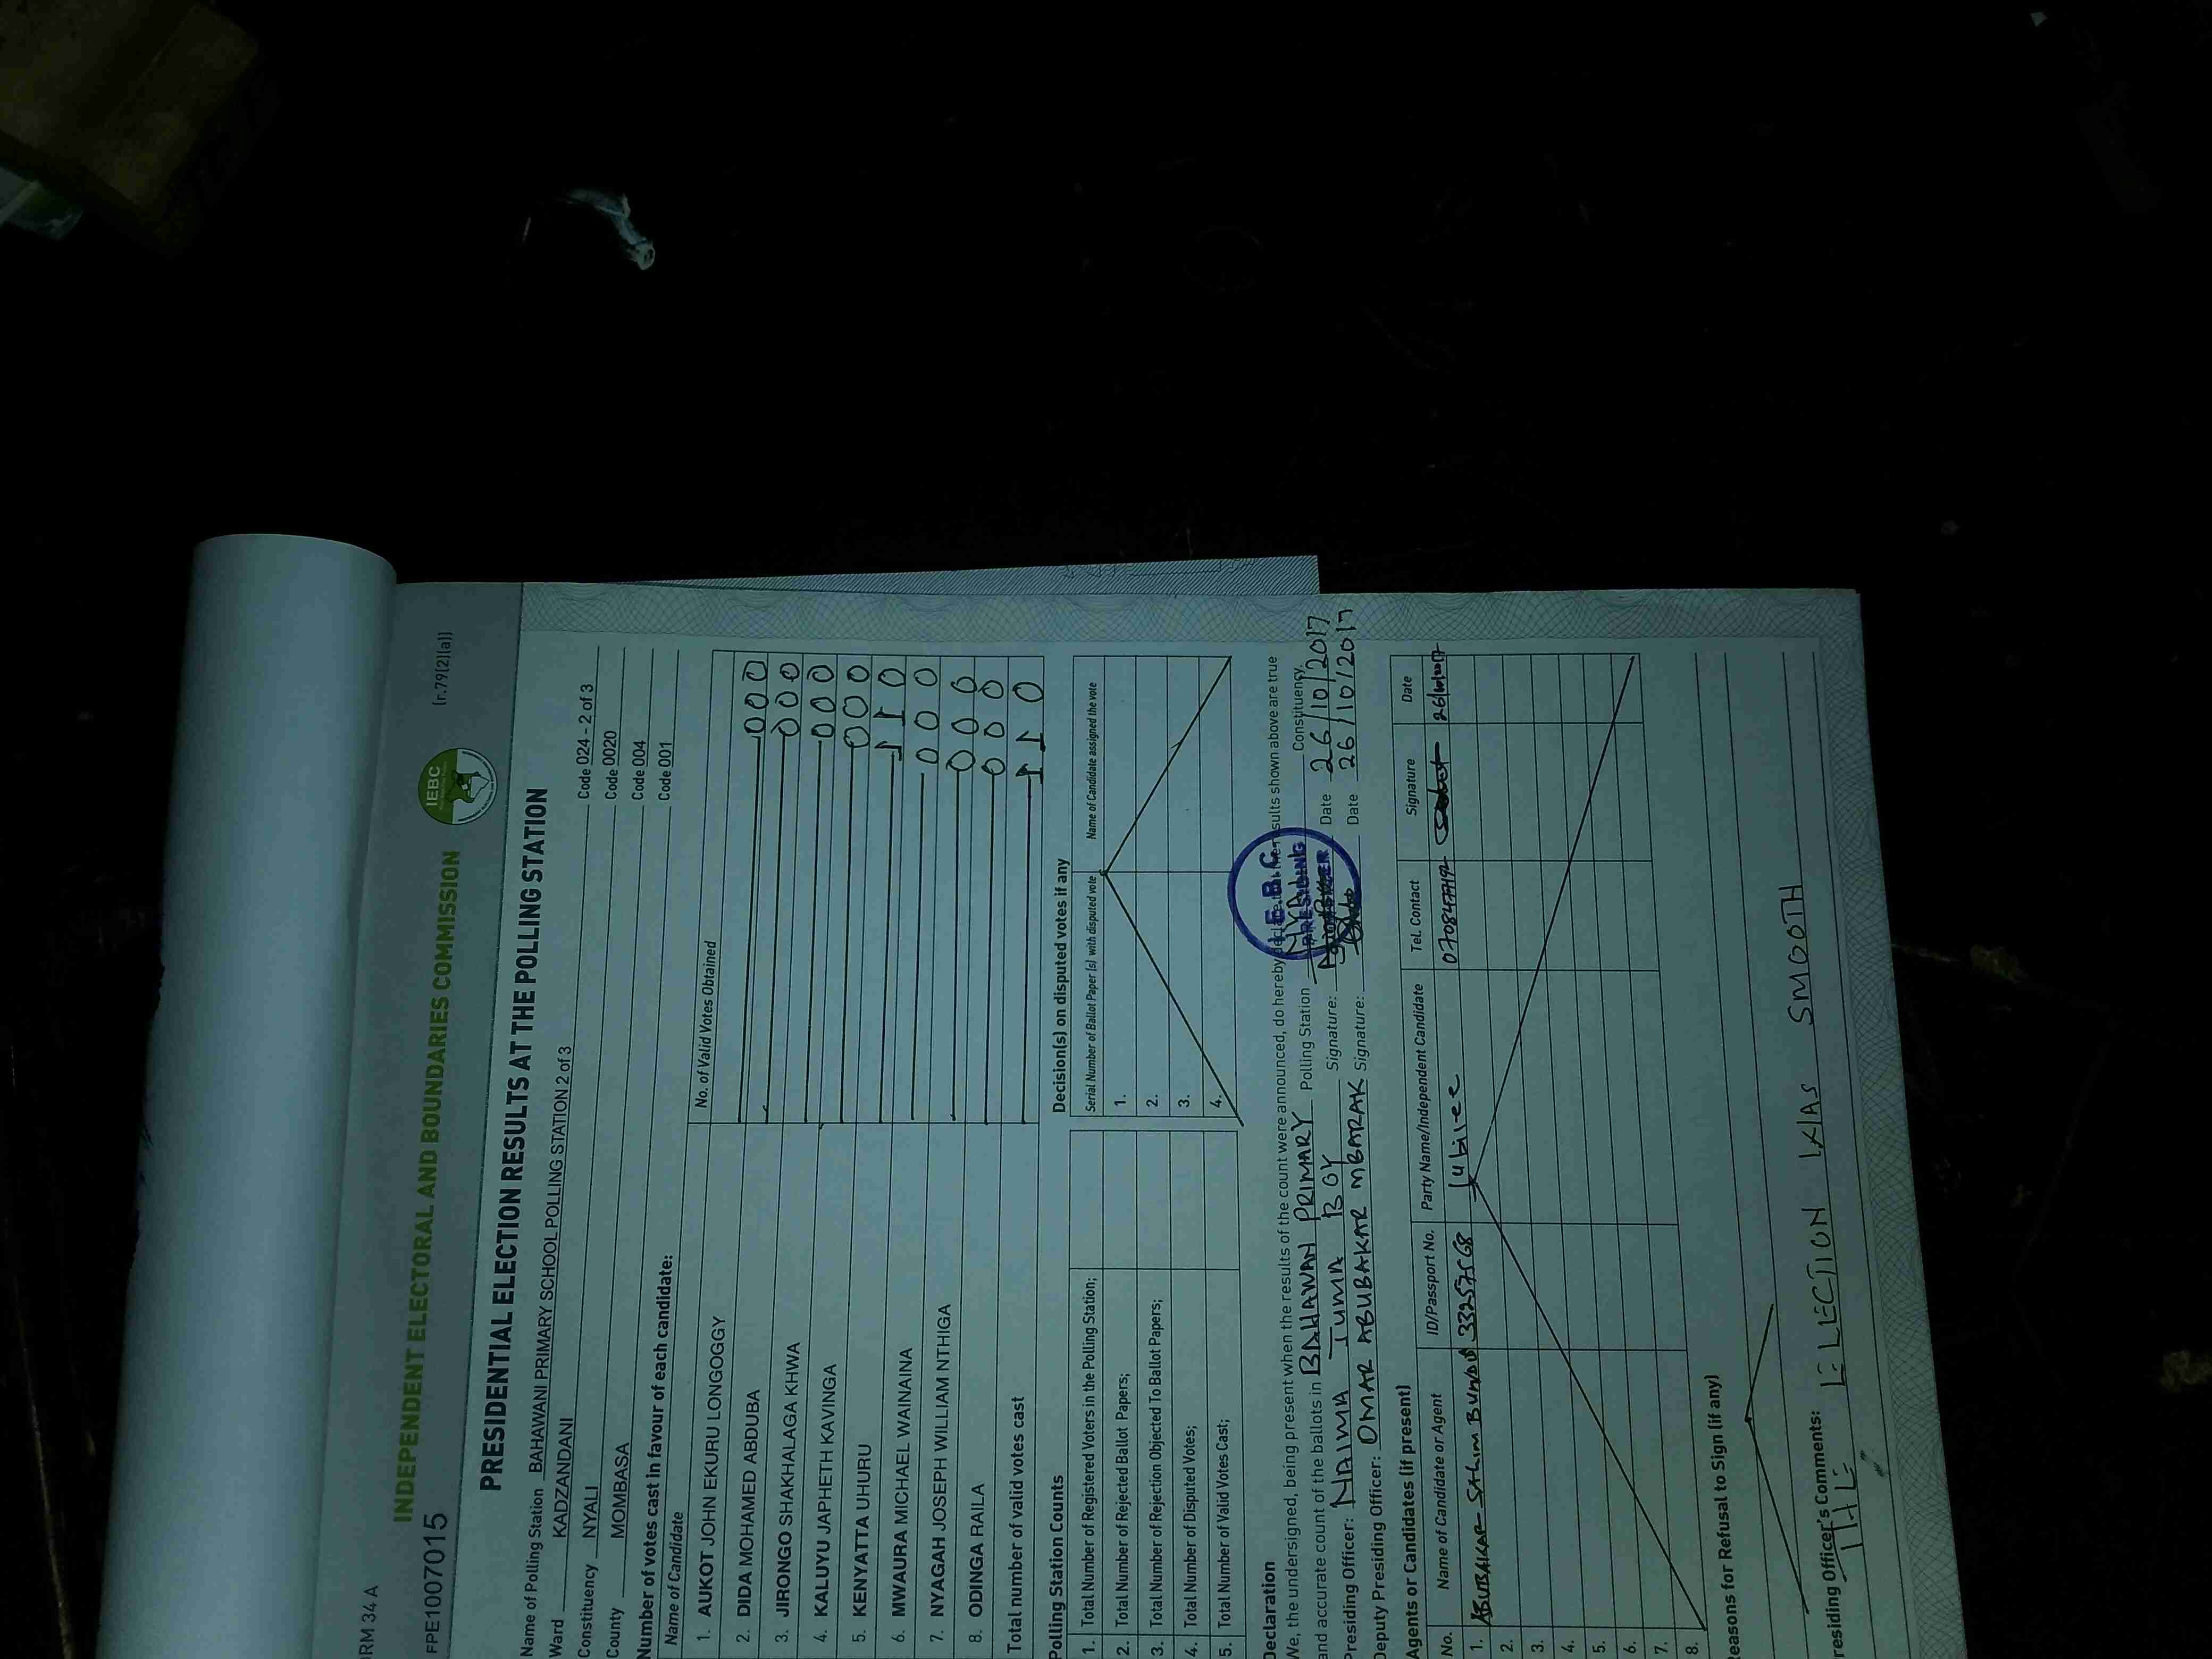 RM 34 A
(r.79(2)(a))
INDEPENDENT ELECTORAL AND BOUNDARIES COMMISSION
IEBC
FPE1007015
PRESIDENTIAL ELECTION RESULTS AT THE POLLING STATION
Name of Polling Station BAHAWANI PRIMARY SCHOOL POLLING STATION 2 of 3 Code 024 - 2 of 3
Ward KADZANDANI Code 0020
Constituency NYALI Code 004
County MOMBASA Code 001
Number of votes cast in favour of each candidate:
Name of Candidate No. of Valid Votes Obtained
1. AUKOT JOHN EKURU LONGOGGY 000
2. DIDA MOHAMED ABDUBA 000
3. JIRONGO SHAKHALAGA KHWA 000
4. KALUYU JAPHETH KAVINGA 000
5. KENYATTA UHURU 110
6. MWAURA MICHAEL WAINAINA 000
7. NYAGAH JOSEPH WILLIAM NTHIGA 000
8. ODINGA RAILA 000
Total number of valid votes cast 110
Polling Station Counts
1. Total Number of Registered Voters in the Polling Station;
2. Total Number of Rejected Ballot Papers;
3. Total Number of Rejection Objected To Ballot Papers;
4. Total Number of Disputed Votes;
5. Total Number of Valid Votes Cast;
Decision(s) on disputed votes if any
Serial Number of Ballot Paper (s) with disputed vote Name of Candidate assigned the vote
1.
2.
3.
4.
Declaration
We, the undersigned, being present when the results of the count were announced, do hereby declare results shown above are true
and accurate count of the ballots in BAHAWANI PRIMARY Polling Station NYALI Constituency.
Presiding Officer: NAIMA JUMA BOY Signature: Date 26/10/2017
Deputy Presiding Officer: OMAR ABUBAKAR MBARAK Signature: Date 26/10/2017
I.E.B.C.
PRESIDING
OFFICER
Agents or Candidates (if present)
No. Name of Candidate or Agent ID/Passport No. Party Name/Independent Candidate Tel. Contact Signature Date
1. ABUBAKAR SALIM 33257568 Jubilee
2.
3.
4.
5.
6.
7.
8.
easons for Refusal to Sign (if any)
residing Officer's Comments:
THE ELECTION WAS SMOOTH